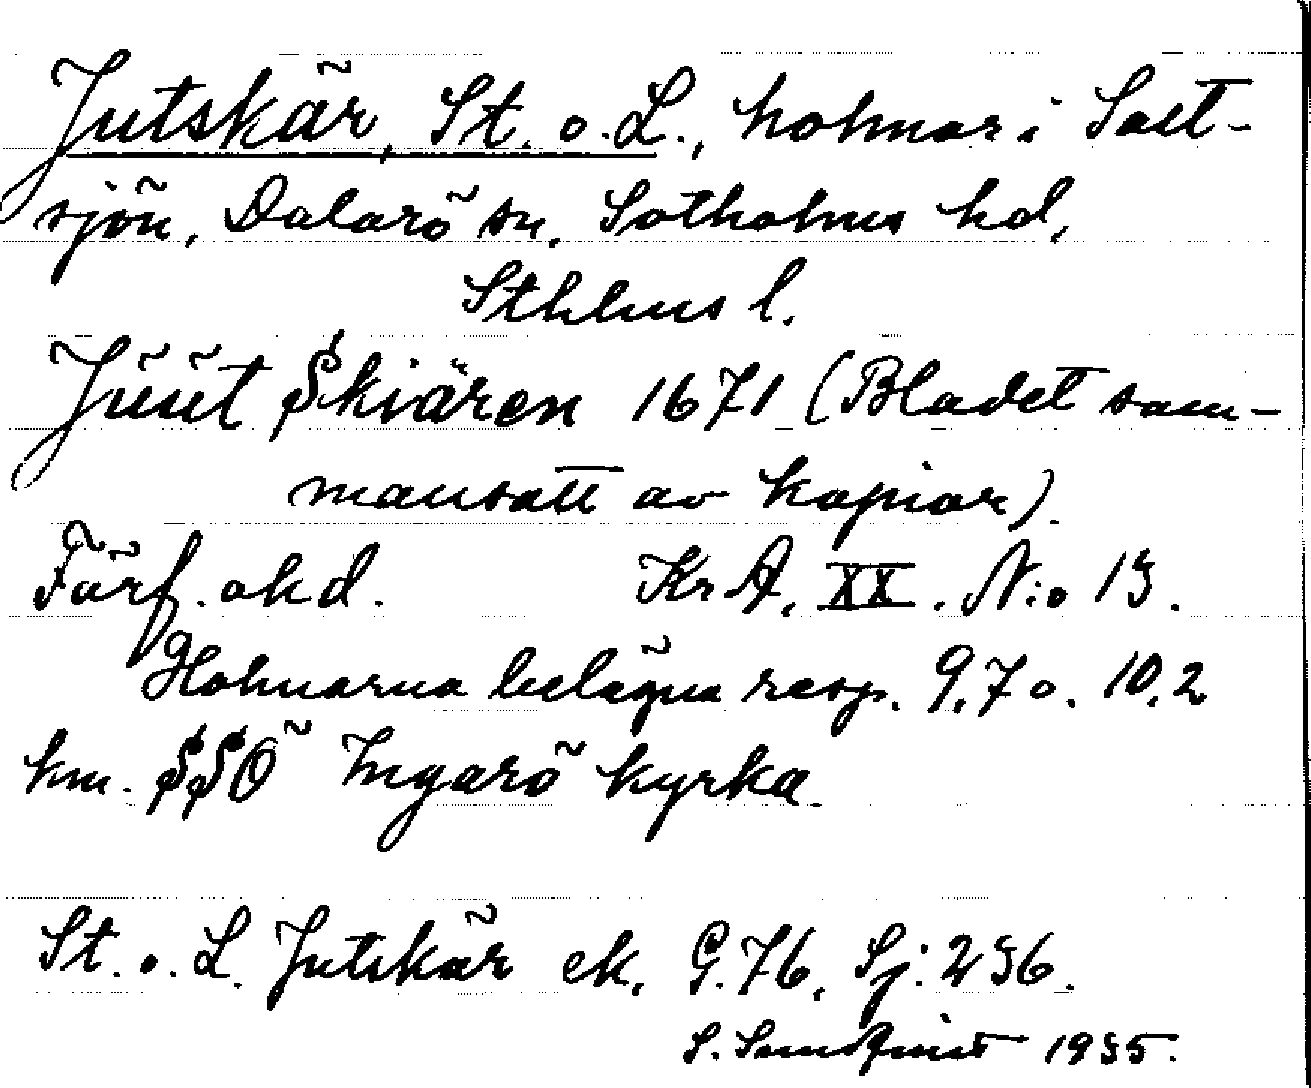 Jutskär, St. o. L., holmar i Salt-
sjön, Dalarö sn, Sotholms hd,
Sthlms l.
Jüüt Skiären 1671 (Bladet sam-
mansatt av kopior).
Förf. okd. KrA, XX. N:o 13.
Holmarna belägna resp. 9,7 o. 10,2
km. SSÖ Ingarö kyrka.
St. o. L. Jutskär ek, G. 76, Sj: 236.
S. Sundqvist 1935.